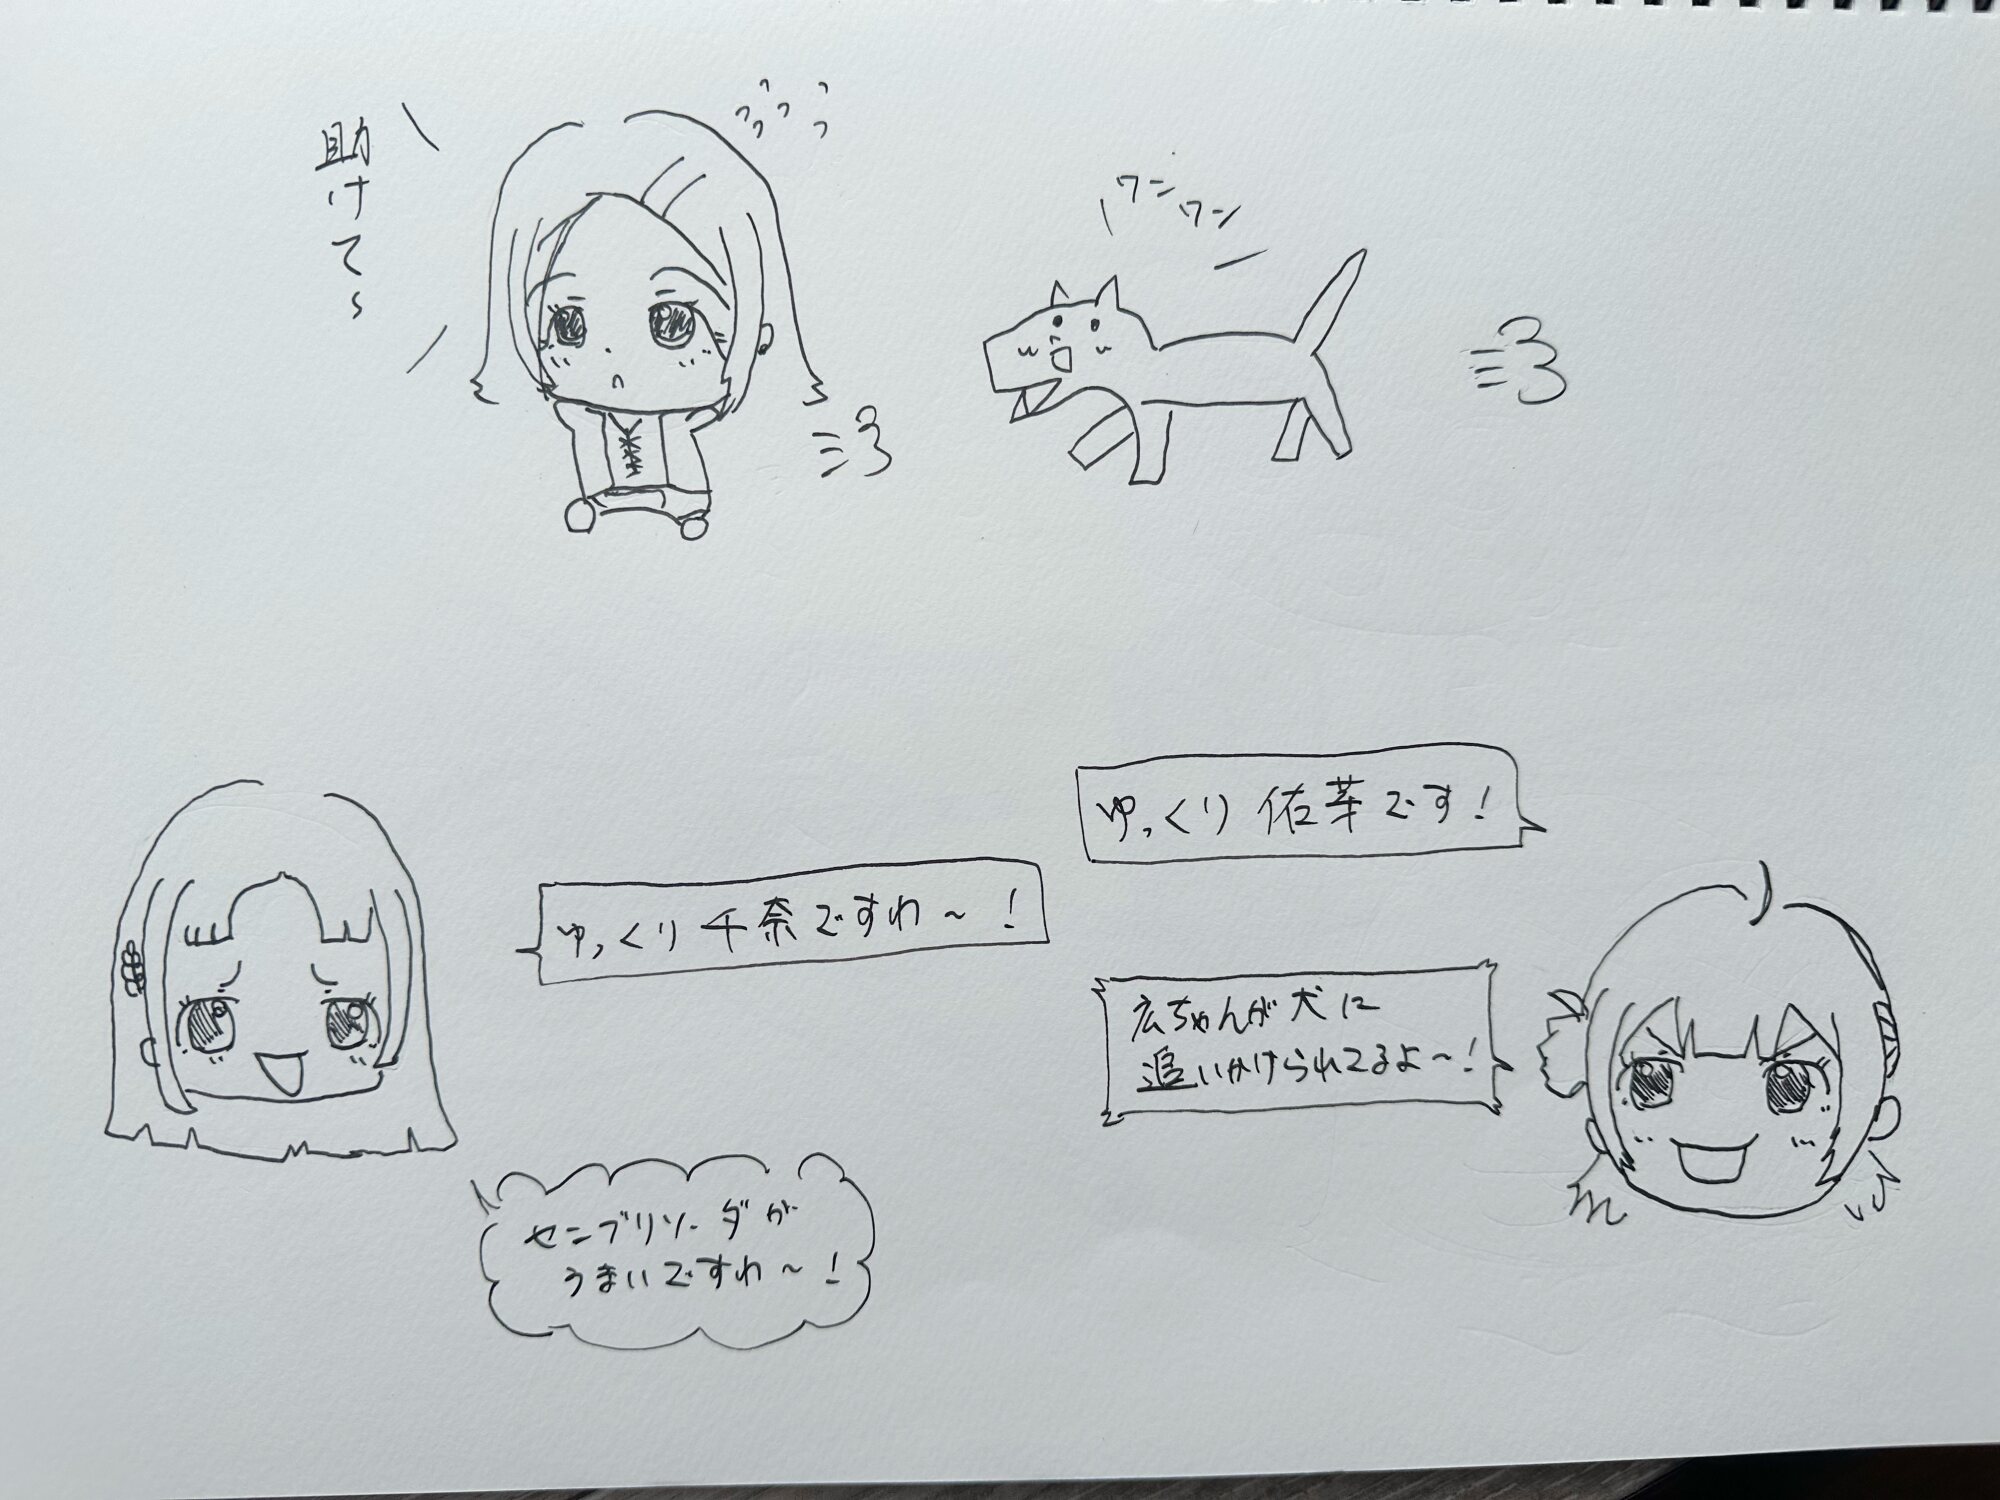 助けて〜
ワンワン
ゆっくり佑芽です！
ゆっくり千奈ですわ〜！
広ちゃんが犬に
追いかけられてるよ〜！
センブリソーダが
うまいですわ〜！